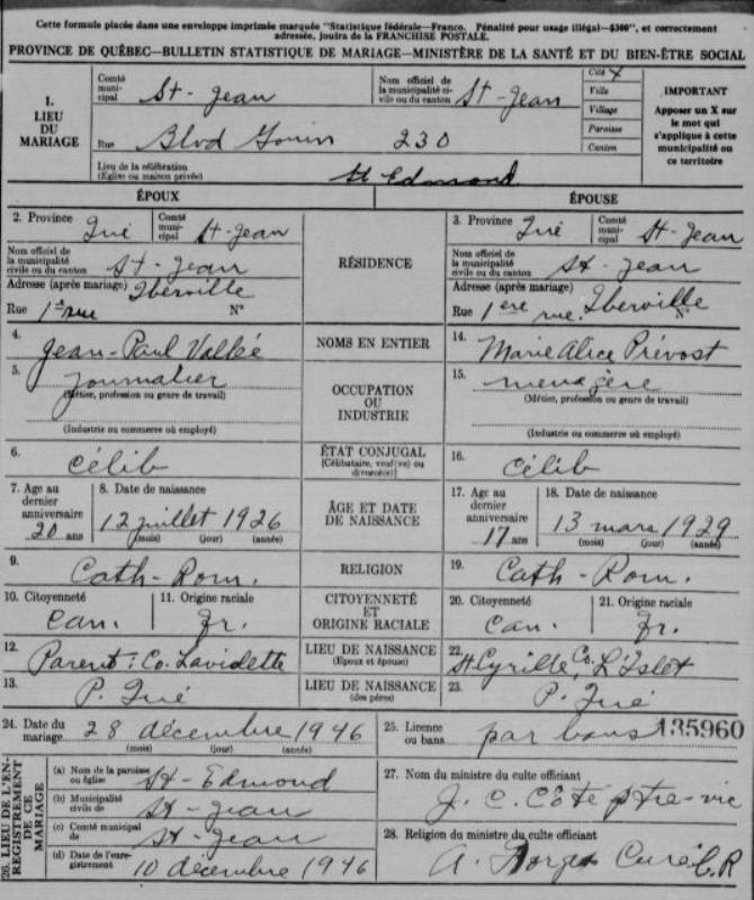 Cette formule placée dans une enveloppe imprimée marquée "Statistique fédérale—Franco. Pénalité pour usage illégal—$300", et correctement
adressée, jouira de la FRANCHISE POSTALE.
PROVINCE DE QUÉBEC—BULLETIN STATISTIQUE DE MARIAGE—MINISTÈRE DE LA SANTÉ ET DU BIEN-ÊTRE SOCIAL
1. LIEU DU MARIAGE
Comté municipal St-Jean
Nom officiel de la municipalité civile ou du canton St-Jean
Cité X
Ville
Village
Paroisse
Canton
IMPORTANT
Apposer un X sur
le mot qui
s'applique à cette
municipalité ou
ce territoire
Rue Blvd Gouin 230
Lieu de la célébration
(Église ou maison privée) St Edmond
ÉPOUX
ÉPOUSE
2. Province Qué Comté municipal St-Jean
RÉSIDENCE
3. Province Qué Comté municipal St-Jean
Nom officiel de la municipalité civile ou du canton St-Jean
Nom officiel de la municipalité civile ou du canton St-Jean
Adresse (après mariage) Iberville
Rue 1ère rue N°
Adresse (après mariage) Iberville
Rue 1ère rue. N°
4. Jean-Paul Vallée
NOMS EN ENTIER
14. Marie Alice Prévost
5. Journalier
(Métier, profession ou genre de travail)
(Industrie ou commerce où employé)
OCCUPATION
OU
INDUSTRIE
15. menagère
(Métier, profession ou genre de travail)
(Industrie ou commerce où employé)
6. Célib
ÉTAT CONJUGAL
[Célibataire, veuf(ve) ou
divorcé(e)]
16. Célib
7. Age au dernier anniversaire 20 ans
8. Date de naissance
12 juillet 1926
(mois) (jour) (année)
ÂGE ET DATE
DE NAISSANCE
17. Age au dernier anniversaire 17 ans
18. Date de naissance
13 mars 1929
(mois) (jour) (année)
9. Cath-Rom.
RELIGION
19. Cath-Rom.
10. Citoyenneté Can.
11. Origine raciale Fr.
CITOYENNETÉ
ET
ORIGINE RACIALE
20. Citoyenneté Can.
21. Origine raciale Fr.
12. Parent: Co. Laviolette
LIEU DE NAISSANCE
(Époux et épouse)
22. St Cyrille, Co. L'Islet
13. P. Qué
LIEU DE NAISSANCE
(des pères)
23. P. Qué
24. Date du mariage 28 décembre 1946
(mois) (jour) (année)
25. Licence ou bans par bans 135960
26. LIEU DE L'ENREGISTREMENT DE CE MARIAGE
(a) Nom de la paroisse ou église St-Edmond
(b) Municipalité civile de St-Jean
(c) Comté municipal de St-Jean
(d) Date de l'enregistrement 10 décembre 1946
27. Nom du ministre du culte officiant
J. C. Côté ptre-vic
28. Religion du ministre du culte officiant
A. Curé C.R